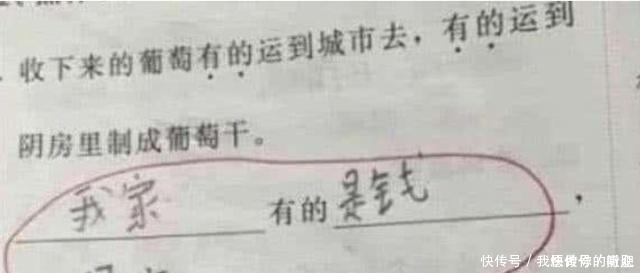 收下来的葡萄有的运到城市去，有的运到
阴房里制成葡萄干。
我家有的是钱，
快传号/我